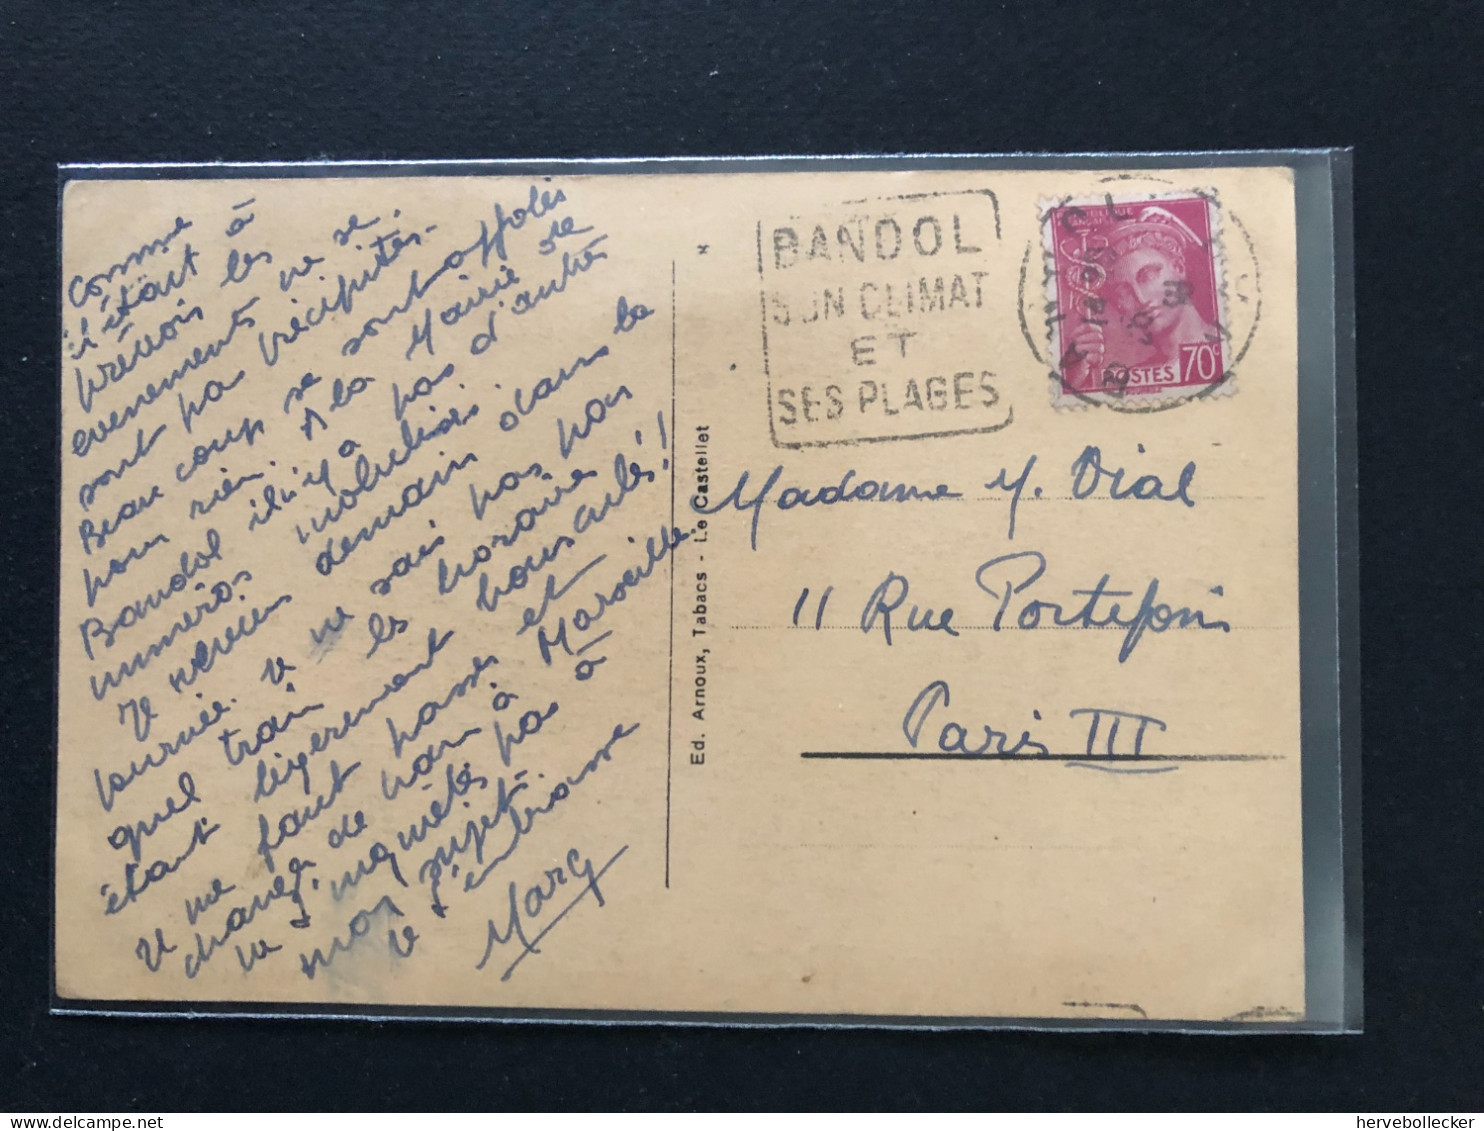 Comme
il était à
prévoir les
evenements ne se
sont pas précipités.
Beaucoup se sont affolés
pour rien. A la Mairie de
Bandol il n'y a pas d'autres
numéros mobilisés.
Je reviens demain dans la
journée. Je ne sais pas par
quel train les horaires
étant légèrement bousculés!
Il me faut passer et
changer de train à Marseille.
Ne t'inquiètes pas à
mon sujet.
Je t'embrasse
Marg
Ed. Arnoux, Tabacs - Le Castellet
BANDOL
SON CLIMAT
ET
SES PLAGES
POSTES 70c
Madame M. Vial
11 Rue Portefoin
Paris III
hervebollecker